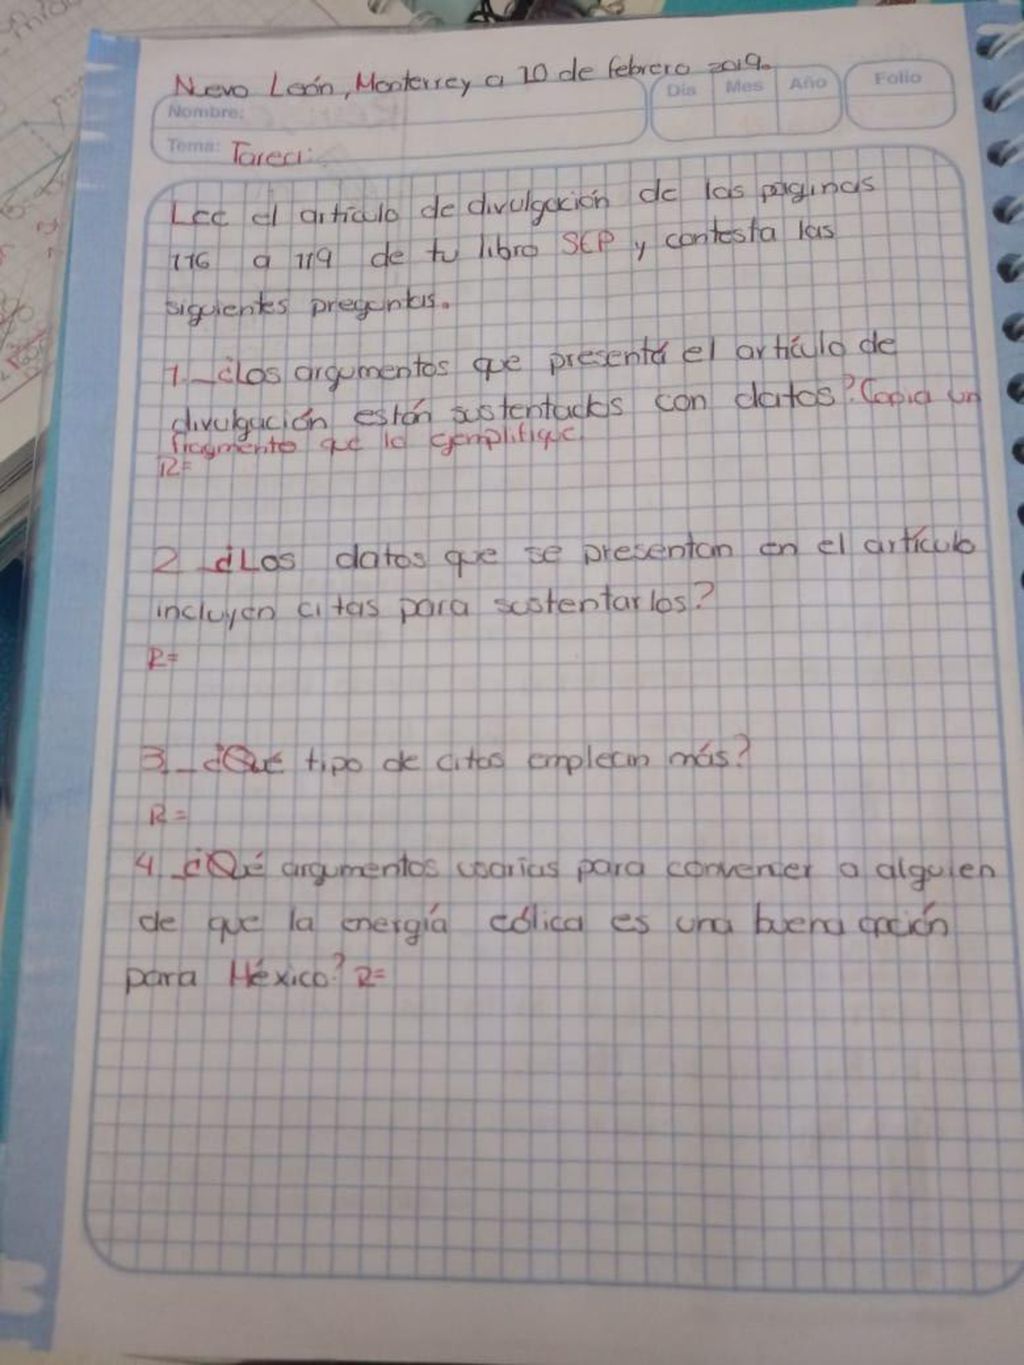 Nuevo León, Monterrey a 10 de febrero 2019.
Nombre:
Día Mes Año Folio
Tema: Tarea:
Lee el artículo de divulgación de las paginas
116 a 119 de tu libro SEP y contesta las
siguientes preguntas.
1._ ¿Los argumentos que presentá el artículo de
divulgación están sustentados con datos? Copia un
fragmento que lo ejemplifique
R=
2_ ¿Los datos que se presentan en el artículo
incluyen citas para sustentarlos?
R=
3_ ¿Qué tipo de citas emplean más?
R=
4_ ¿Qué argumentos usarias para convencer a alguien
de que la energía eólica es una buena opción
para México? R=